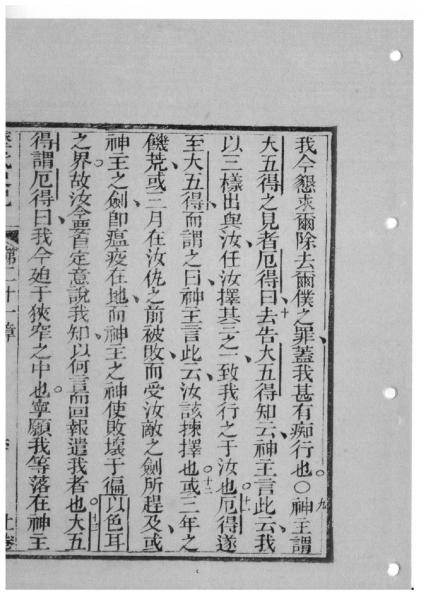 我今懇求爾除去爾僕之罪蓋我甚有痴行也。〇九神主謂
大五得之見者厄得曰十去告大五得知云神主言此云我
以三樣出與汝任汝擇其三之一致我行之于汝也。十一厄得遂
至大五得而謂之曰神主言此云汝該揀擇也。十二或三年之
饑荒或三月在汝仇之前被敗而受汝敵之劍所趕及或
神主之劍即瘟疫在地而神主之神使敗壞于徧以色耳
之界故汝今要自定意說我知以何言而回報遣我者也。十三大五
得謂厄得曰我今廹于狹窄之中也。寧願我等落在神主
第二十一章